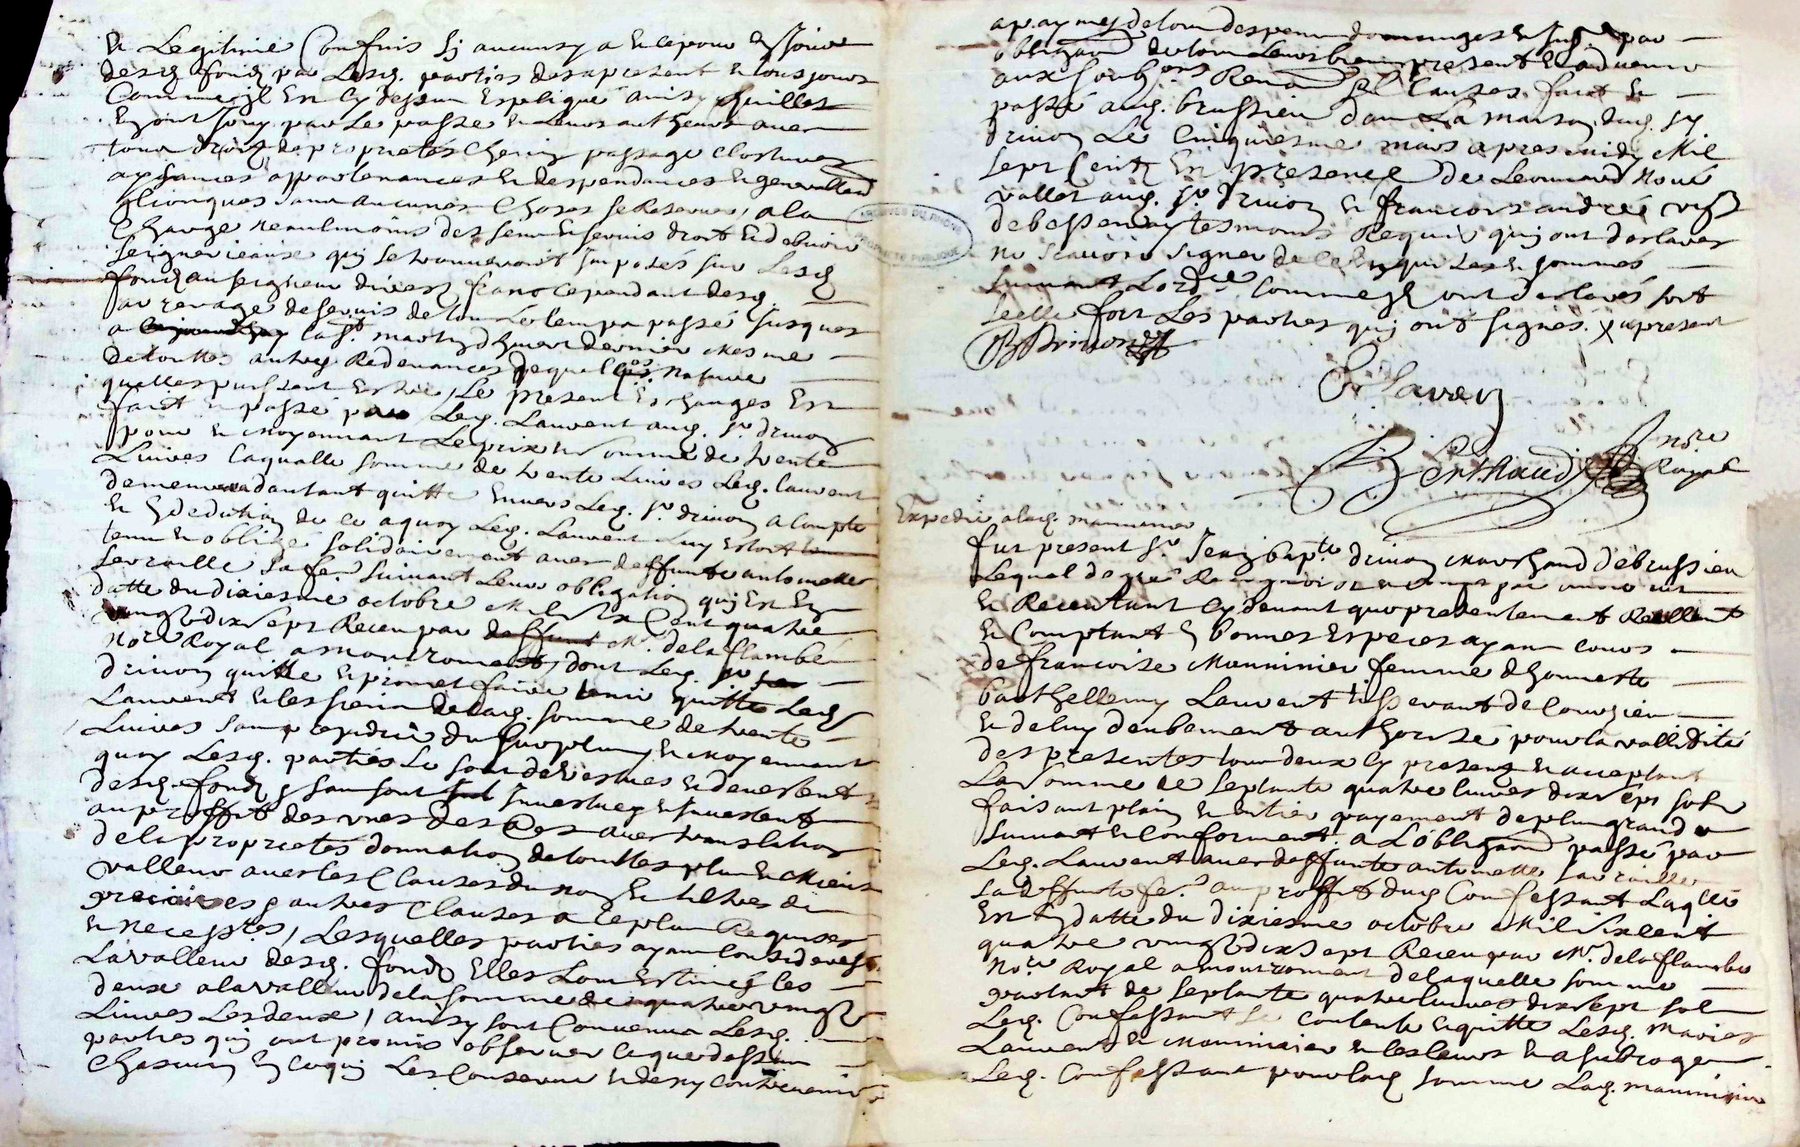 et Legitime Confins sy aucuns y a et ce pour esjouir
desd. fondz par Lesd. parties des a present et tousjours
Comme il Est Cy dessus Expliqué ainsy quilles
En ont jouy par Le passé et Leurs autheurs avec
tous droitz de proprietés Chemins passage Clostures
aysances appartenances et despendances et generallem.
qlconques sans aucunes Choses se Reserver, a la
Charge neaulmoins des sens et servis droit et debvoirs
seigneuriaux quy se trouveront imposés sur Lesd.
fondz au seigneur direct franc cependant desd.
arrerages de servis de tout Le temps passé jusques
a la st. martin d'hyver dernier Mesme
de touttes autres Redevances de quelles nature
quelles puissent Estre, Le present Eschanges Est
fait et passé par Led. Laurent aud. sr. drivon
pour et Moyennant Le prix et somme de trente
Livres Laqualle somme de trente Livres Led. Laurent
demeure d'autant quitte Envers Led. sr. drivon a Compte
et En deduction de ce a quoy Led. Laurent Luy Estoit
tenu et obligé solidairement avec deffunte anthoinette
savoille sa fe. suivant Leur obligation quy Est En
datte du dixiesme octobre Mil six Cent quatre
vingt dix sept Receu par Me. de la flambe
Nore. Royal a montroment, dont Led. sr.
drivon quitte et promet faire tenir quitte Led.
Laurent et les siens de lad. somme de trente
Livres sans prejudice du surplus, et Moyennant
quoy Lesd. parties se sont devestues et devestent
desd. fondz, sen sont investues et investent
au proffit des unes des autres avec translation
de la proprietés donnation de touttes plus et Mieux
valleur avec les Clauses du nom et tiltres de
precaires et autres Clauses a ce plus Requises
et necesstes, Lesquelles parties ayant Consideres
La valleur desd. fondz Elles Lont Estimés les
deux a la valleur de la somme de quatre vingt
Livres Les deux, ainsy sont Convenues Lesd.
parties quy ont promis observer Ce que dessus
Chascun En ce quy Les Conserne et de ny Contrevenir
a p. aymes de tous despens dommages et inths. par
obligaon. de tous Leurs biens present et advenir
aux soubons. Renons. et Clauses. fait et
passé aud. brussieu dans La maison dud. sr.
drivon Le Cinquiesme mars apres midy Mil
sept Centz En presence de Leonnard
vallet aud. sr. drivon et francois andrée vigr.
de bessenay tesmoins Requis quy ont declarer
ne scavoir signer de Ce Enquis et sommés
suivant Lordce. Comme ils ont declarés sort
seelle fort Les parties quy ont signés.
BDrivon
Berthaud nore
Royal
Expedié a lad. mauninier
fut present sr. Jean baptte. drivon Marchand de brussieu
Lequel de gré
et Recevtant Cy devant que presentement Reellemt
et Comptant En bonnes Especes ayant cours
de francoise Mauninier femme d'honneste
barthellemy Laurent tisserant de Courzieu
et de luy deubement authorisé pour la vallidité
des presentes tous deux Cy present et acceptant
La somme de septante quatre livres dix sept solz
faisant plain et entier payement de plus grande
suivant et Conforment. a L'obligaon. passé par
Led. Laurent avec deffunte antoinette savoille
sa deffunte fe. au proffit dud. Confessant Laqlle
Est En datte du dixiesme octobre Mil six cent
quatre vingt dix sept Receu par Me. de la flambe
Nore. Royal a montroment de laquelle somme
partant de septante quatre livres dix sept sol
Led. Confessant se contente et quitte Lesd. Mariés
Laurent et Mauninier et les leurs et a subroge
Led. Confessant pour lad. somme Lad. mauninier